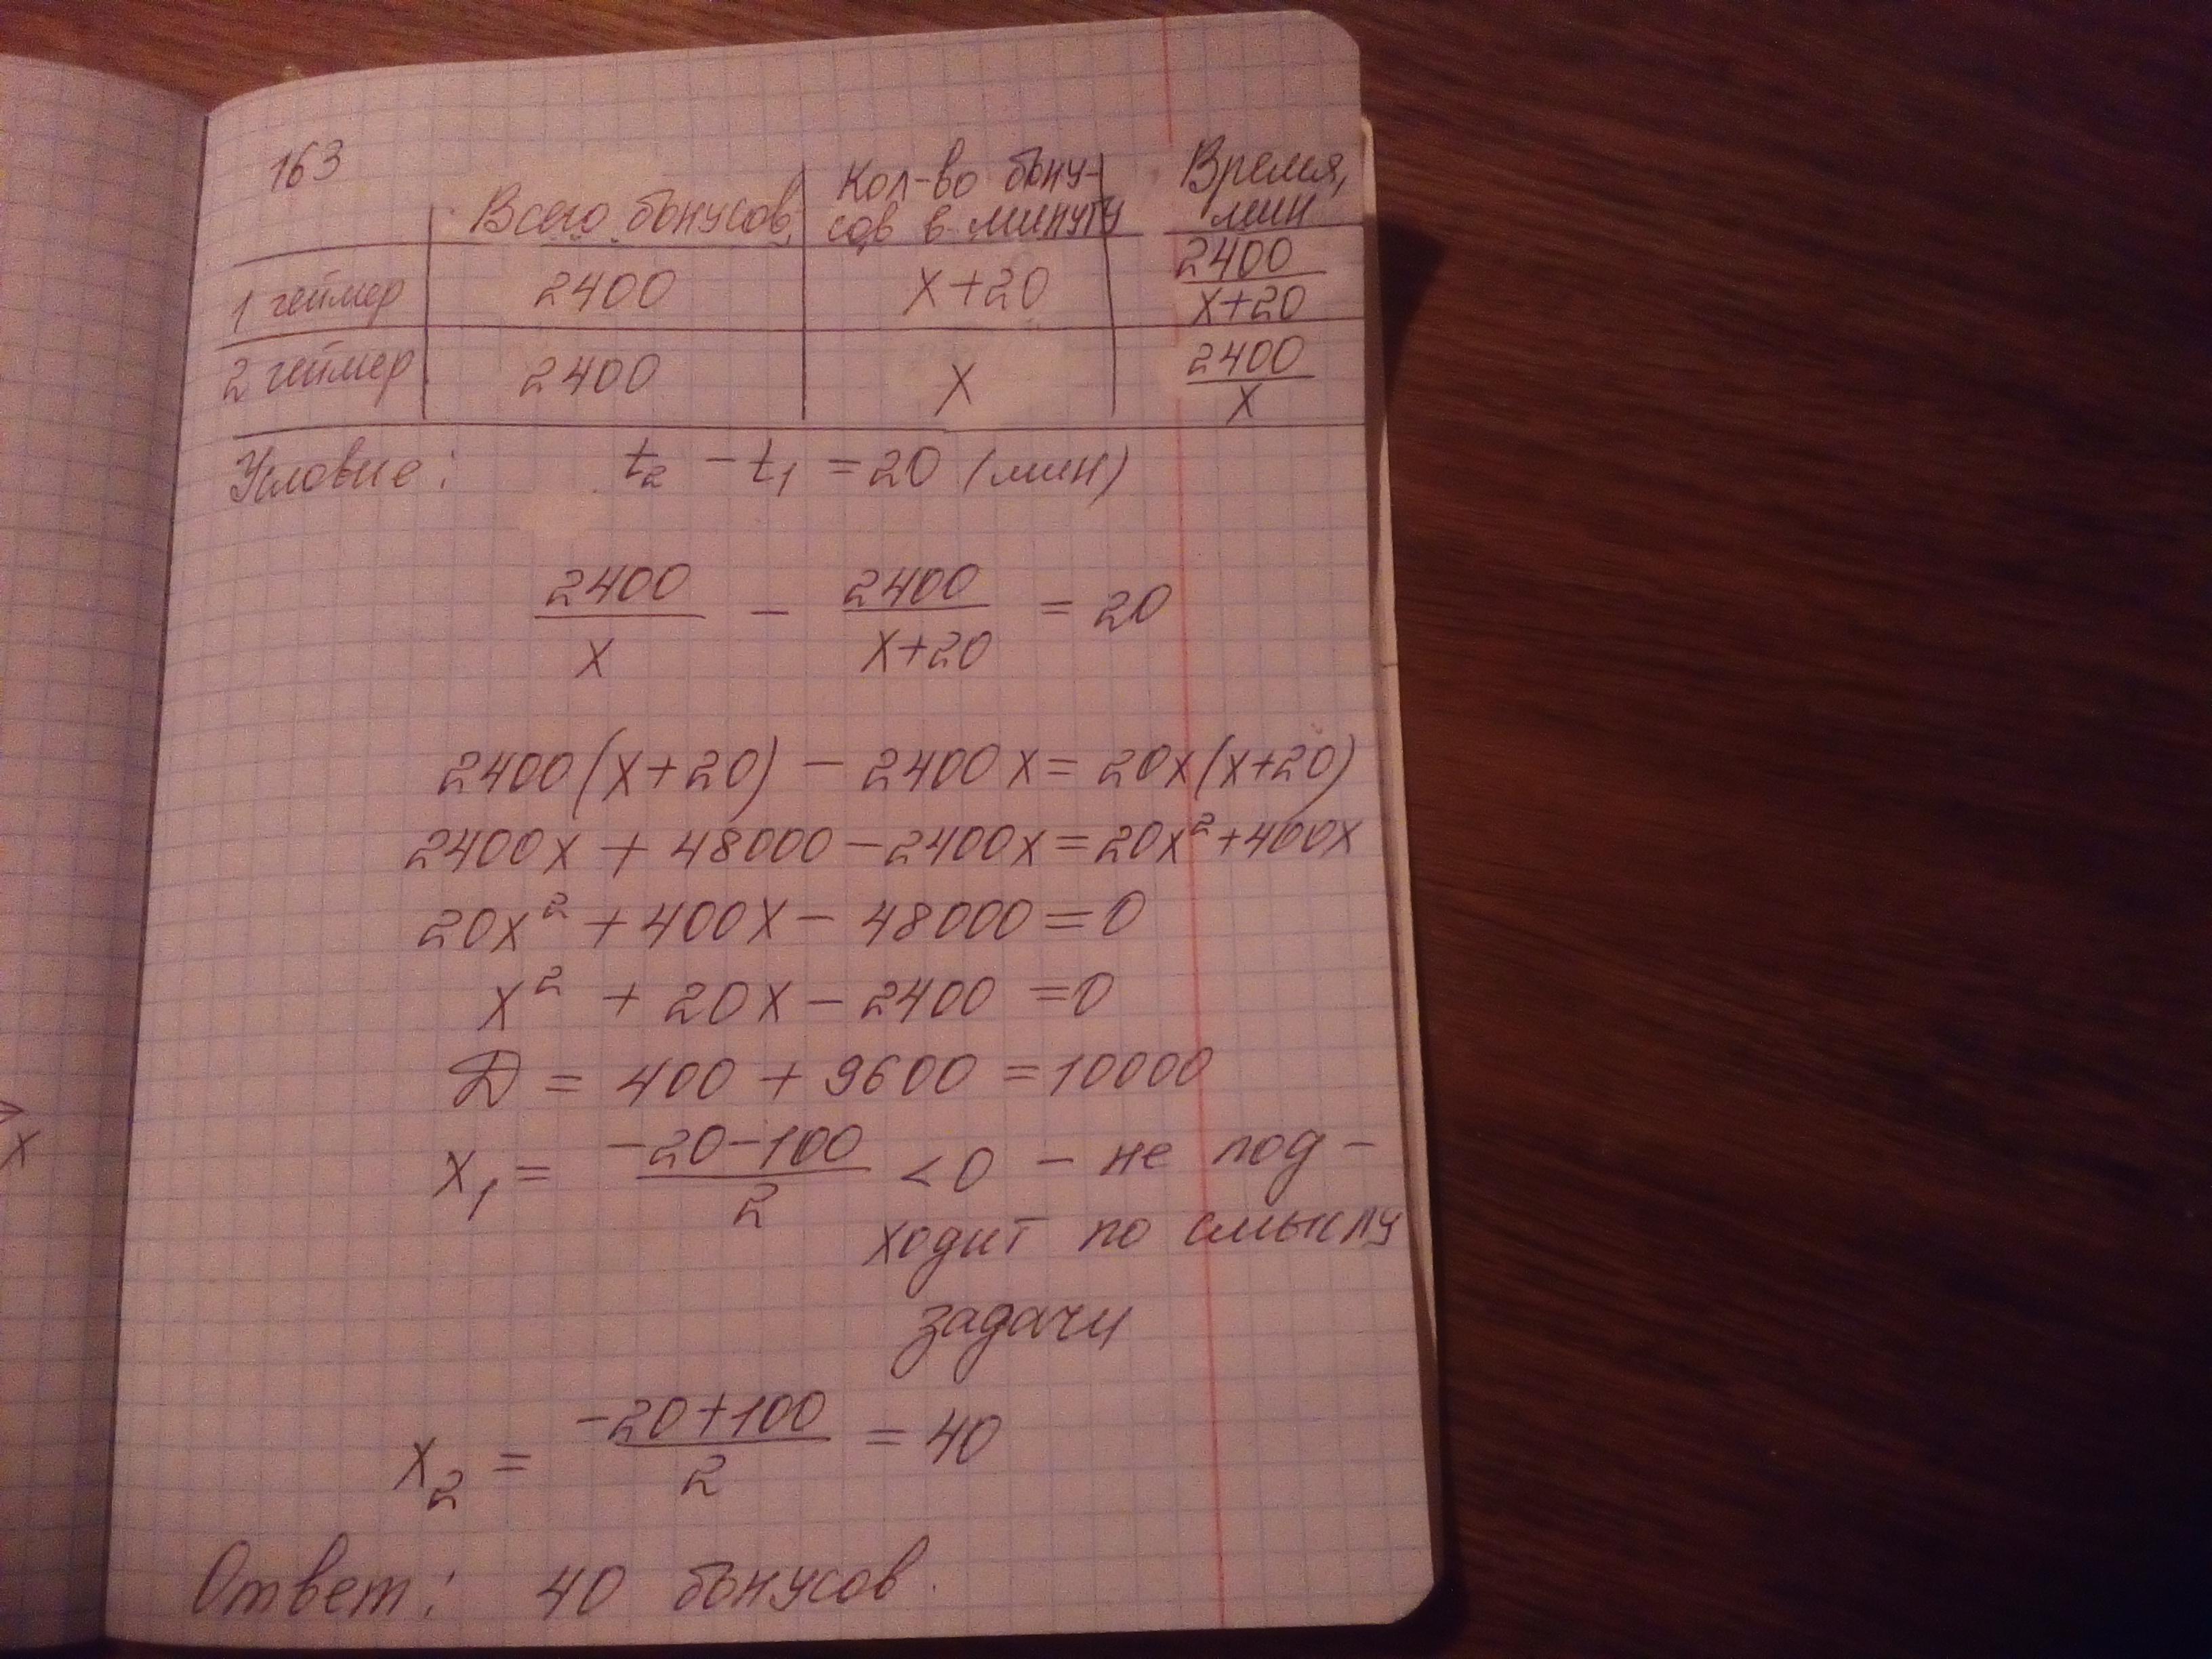 163
Всего бонусов
Кол-во бону-
сов в минуту
Время,
мин
1 геймер 2400 x+20 2400/(x+20)
2 геймер 2400 x 2400/x
Условие: t₂ - t₁ = 20 (мин)
2400/x - 2400/(x+20) = 20
2400(x+20) - 2400x = 20x(x+20)
2400x + 48000 - 2400x = 20x² + 400x
20x² + 400x - 48000 = 0
x² + 20x - 2400 = 0
D = 400 + 9600 = 10000
x₁ = (-20-100)/2 < 0 - не под-
ходит по смыслу
задачи
x₂ = (-20+100)/2 = 40
Ответ: 40 бонусов.
x